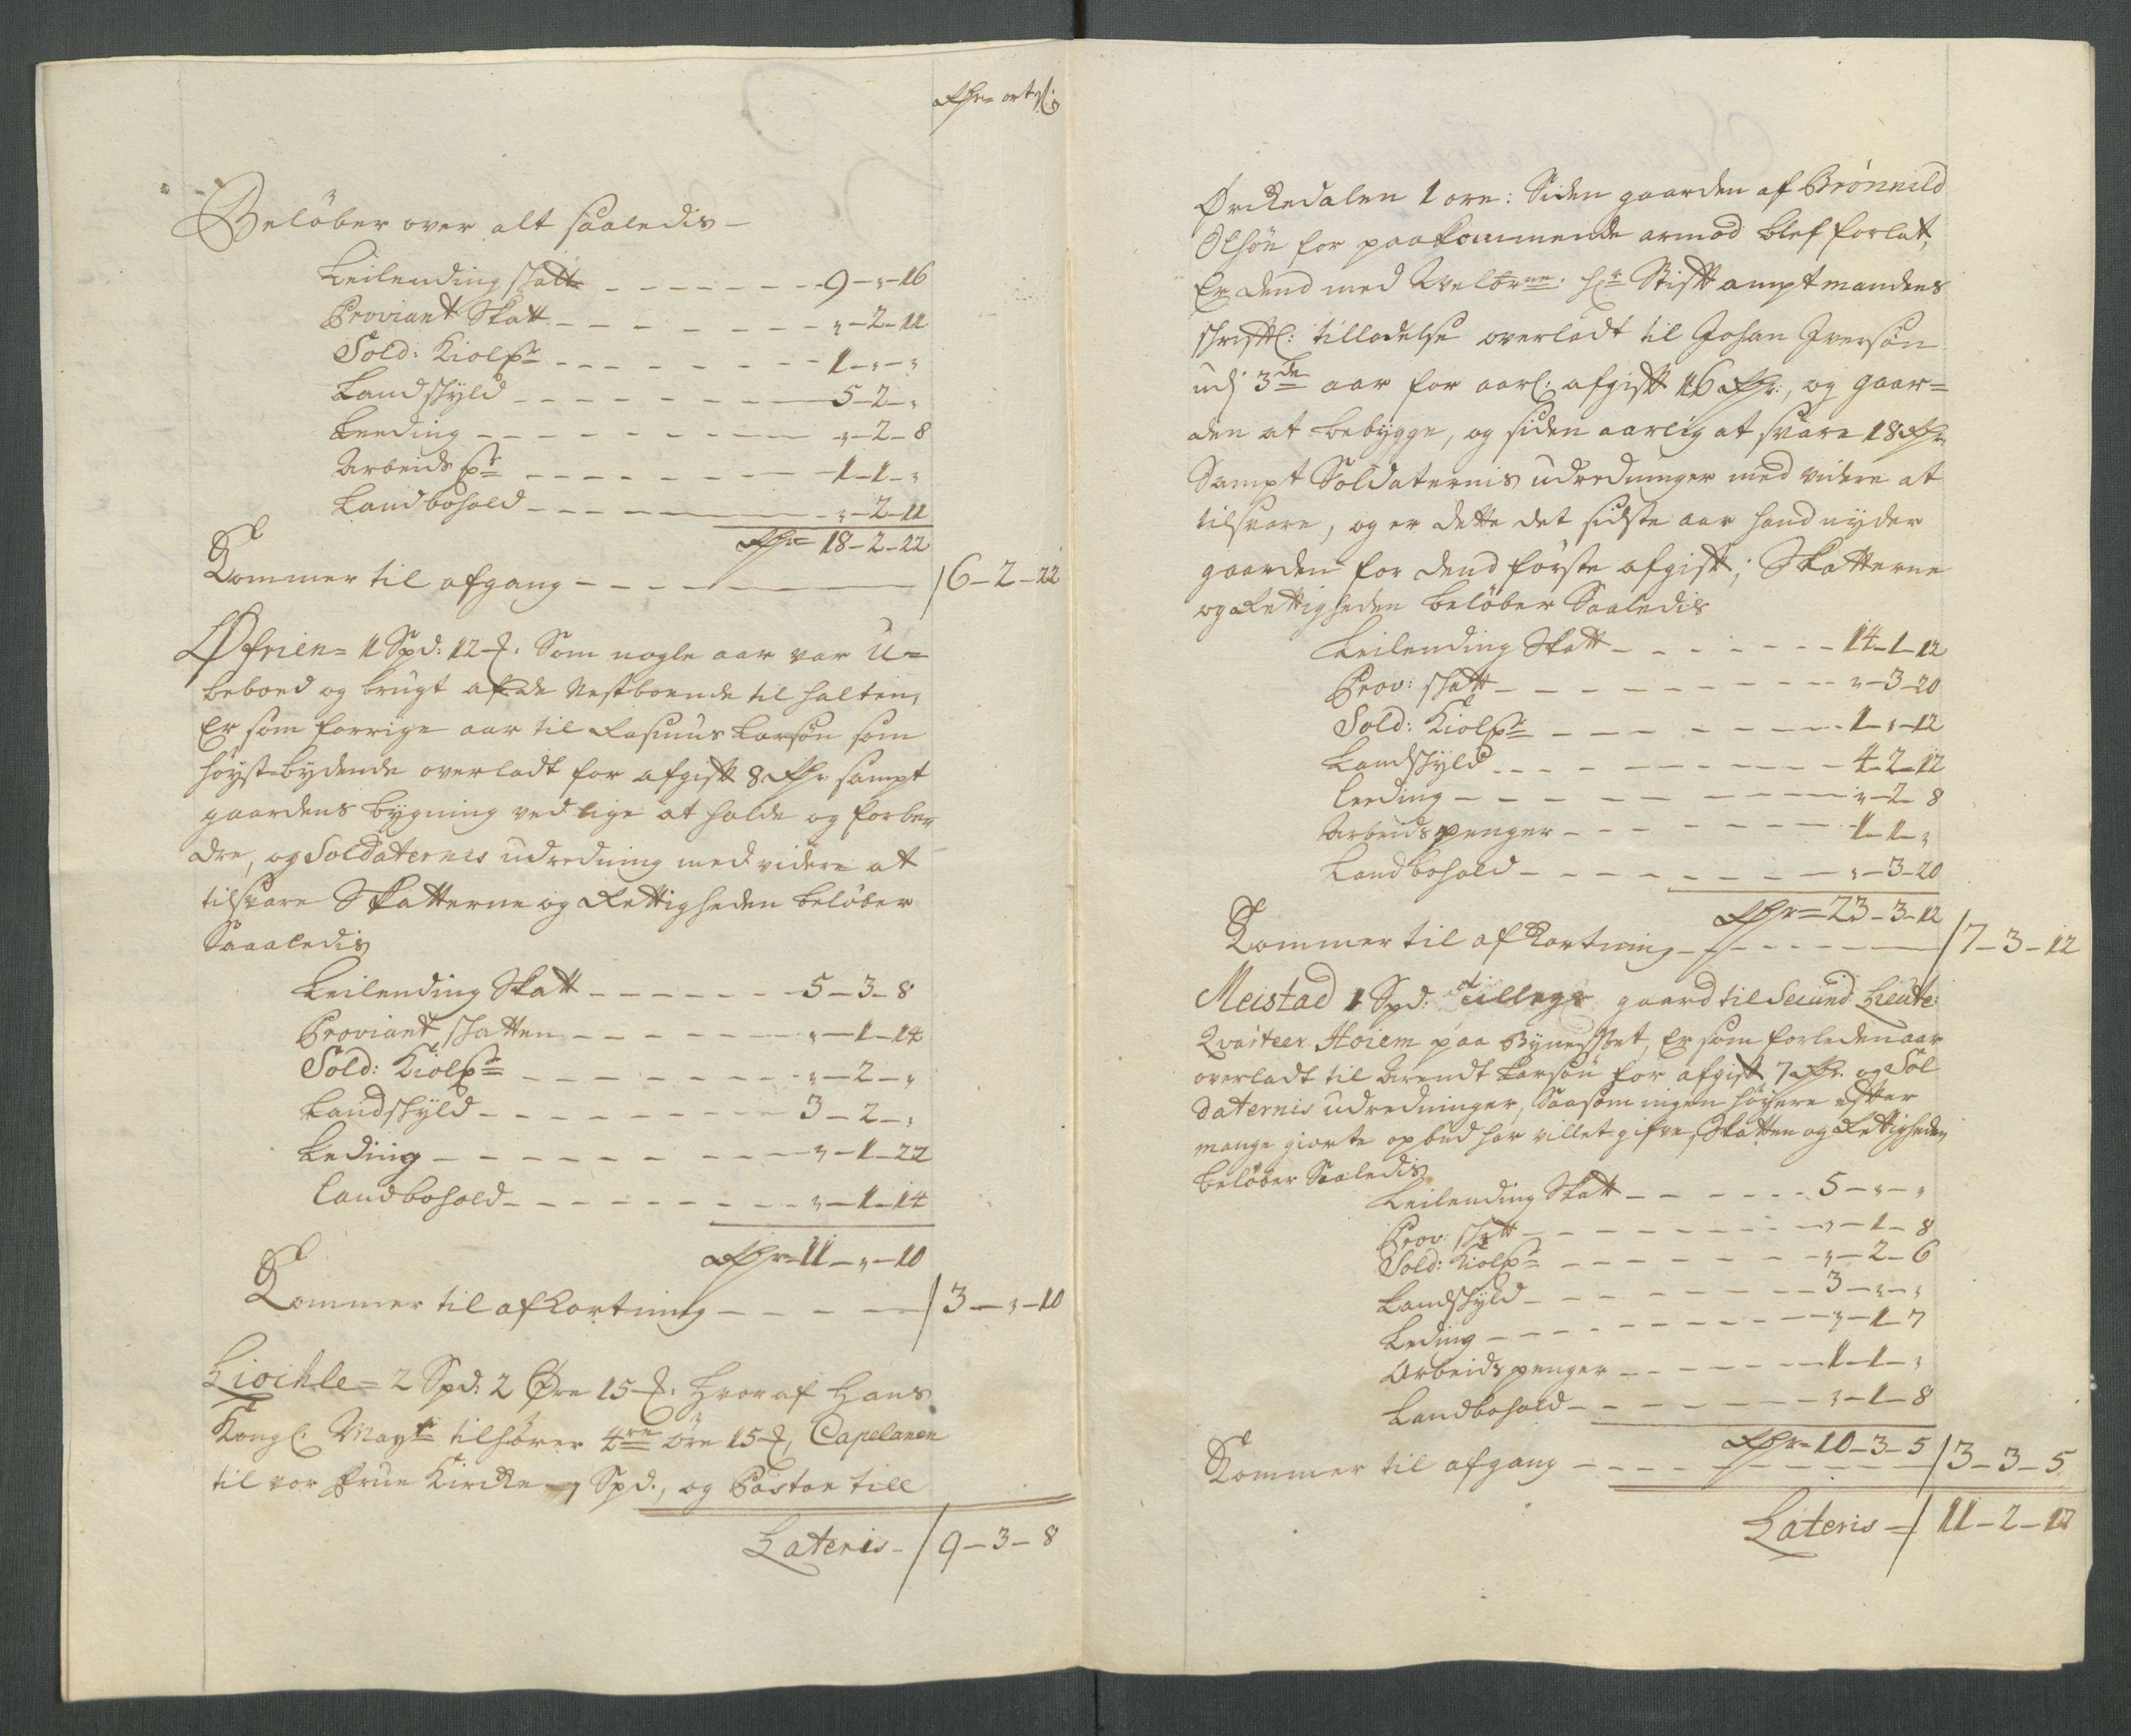 Rhr ort ſ:
Beløber over alt saaledis -
Leilending skatt - - - - - - - 9 - „ - 16
Proviant Skatt - - - - - - - „ - 2 - 11
Sold: Kiolp: - - - - - - - 1 - „ - „
Landskyld - - - - - - - 5 - 2 - „
Leeding - - - - - - - „ - 2 - 8
Arbeids p: - - - - - - - 1 - 1 - „
Landbohold - - - - - - - „ - 2 - 11
Rhr = 18 - 2 - 22
Kommer til afgang - - - - - 6 - 2 - 22
Øfrien = 1 Spd: 12 . Som nogle aar var U=
beboed og brugt af de Nestboende til halten,
Er som forrige aar til Rasmus Larsøn som
høyst-bydende overladt for afgift 8 Rhr sampt
gaardens bygning ved lige at holde og forbe
dre, og Soldaternes udredning med videre at
tilsvare Skatterne og Rettigheden beløber
Saaaledis
Leilending Skatt - - - - - - 5 - 3 - 8
Proviant skatten - - - - - - „ - 1 - 14
Sold: Kiolp: - - - - - - „ - 2 - „
Landskyld - - - - - - 3 - 2 - „
Leding - - - - - - „ - 1 - 22
Landbohold - - - - - - „ - 1 - 14
Rhr = 11 - „ - 10
Kommer til afkortning - - - - - 3 - „ - 10
Liochle = 2 Spd: 2 Øre 15 . hvoraf Hans
Kongl: Mayt: tilhører 4re øre 15 , Capelanen
til vor frue Kircke 1 Spd., og Pastor till
Lateris - 9 - 3 - 8
Ørckedalen 1 ore: Siden gaarden af Brønnild
Olsøn for paakommende armod blef forlat,
Er dend med Welbrne: Hr Stiftamptmandens
skriftl: tilladelse overladt til Johan Iversøn
udj 3de aar for aarl: afgift 16 Rhr:, og gaar=
den at bebygge, og siden aarlig at svare 18 Rhr
Sampt Soldaternis udredninger med videre at
tilsvare, og er dette det sidste aar hand nyder
gaarden for dend første afgift; Skatterne
og Rettigheden beløber Saaledis
Leilending Skatt - - - - - - 14 - 1 - 12
Prov: skatt - - - - - - „ - 3 - 20
Sold: Kiolp: - - - - - - 1 - „ - 12
Landskyld - - - - - - 4 - 2 - 12
Leeding - - - - - - „ - 2 - 8
Arbeidspenger - - - - - - 1 - 1 - „
Landbohold - - - - - - „ - 3 - 20
Rhr = 23 - 3 - 12
Kommer til afkortning - - - - - 7 - 3 - 12
Meistad 1 Spd: tillags gaard til Secund Lieute:
Qvarteer Hoiem paa Bynesset, Er som forleden aar
overladt til Arendt Larsøn for afgift 7 Rhr. og Sol
daternis udredninger, Saasom ingen høyere efter
mange giorte opbud har villet gifve, Skatten og Rettigheden
beløber Saaledis
Leilending Skatt - - - - - - 5 - „ - „
Prov: skatt - - - - - - „ - 1 - 8
Sold: Kiolp: - - - - - - „ - 2 - 6
Landskyld - - - - - - 3 - „ - „
Leding - - - - - - „ - 1 - 7
Arbeidspenger - - - - - - 1 - 1 - „
Landbohold - - - - - - „ - 1 - 8
Rhr = 10 - 3 - 5
Kommer til afgang - - - - - 3 - 3 - 5
Lateris - 11 - 2 - 17